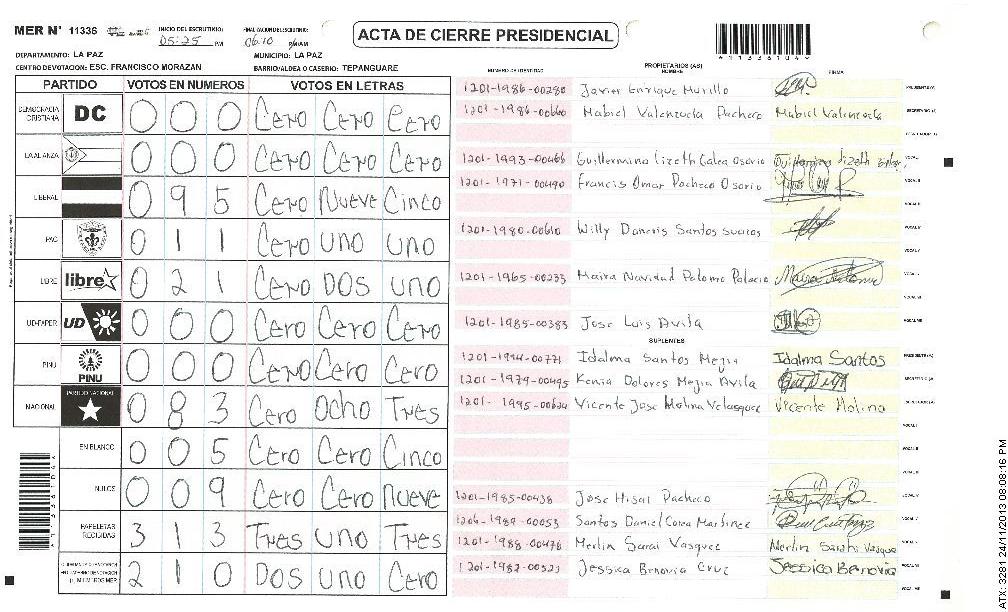 MER N° 11336
INICIO DEL ESCRUTINIO: 05:25 PM
FINALIZACION DEL ESCRUTINIO: 06:10 PM/AM
ACTA DE CIERRE PRESIDENCIAL
DEPARTAMENTO: LA PAZ
MUNICIPIO: LA PAZ
CENTRO DE VOTACION: ESC. FRANCISCO MORAZAN
BARRIO/ALDEA O CASERIO: TEPANGUARE
PARTIDO VOTOS EN NUMEROS VOTOS EN LETRAS
DEMOCRACIA CRISTIANA DC 0 0 0 Cero Cero Cero
LA ALIANZA 0 0 0 Cero Cero Cero
LIBERAL 0 9 5 Cero Nueve Cinco
PAC 0 1 1 Cero uno uno
LIBRE libre 0 2 1 Cero DOS uno
UD-FAPER UD 0 0 0 Cero Cero Cero
PINU PINU 0 0 0 Cero Cero Cero
NACIONAL PARTIDO NACIONAL 0 8 3 Cero Ocho Tres
EN BLANCO 0 0 5 Cero Cero Cinco
NULOS 0 0 9 Cero Cero Nueve
PAPELETAS RECIBIDAS 3 1 3 Tres uno Tres
2 1 0 DOS uno Cero
NUMERO DE IDENTIDAD PROPIETARIOS (AS) NOMBRE FIRMA
1201-1986-00280 Javier Enrique Murillo PRESIDENTE(A)
1201-1986-00660 Mabiel Valenzuela Pacheco Mabiel Valenzuela SECRETARIO(A)
1201-1993-00466 Guillermina Lizeth Calea Osorio VOCAL I
1201-1971-00490 Francis Omar Pacheco Osorio VOCAL II
1201-1980-00610 Willy Daneris Santos Suazos
1201-1965-00233 Maira Navidad Palomo Palacio
1201-1985-00383 Jose Luis Avila
SUPLENTES
1201-1994-00771 Idalma Santos Mejia Idalma Santos PRESIDENTE(A)
1201-1979-00495 Kenia Dolores Mejia Avila SECRETARIO(A)
1201-1995-00624 Vicente Jose Molina Velasquez Vicente Molina
1201-1985-00438 Jose Hisai Pacheco
1206-1989-00053 Santos Daniel Corea Martinez
1201-1988-00478 Merlin Sarai Vasquez
1201-1987-00323 Jessica Benovia Cruz Jessica Benovia
ATX: 3281 24/11/2013 08:08:16 PM